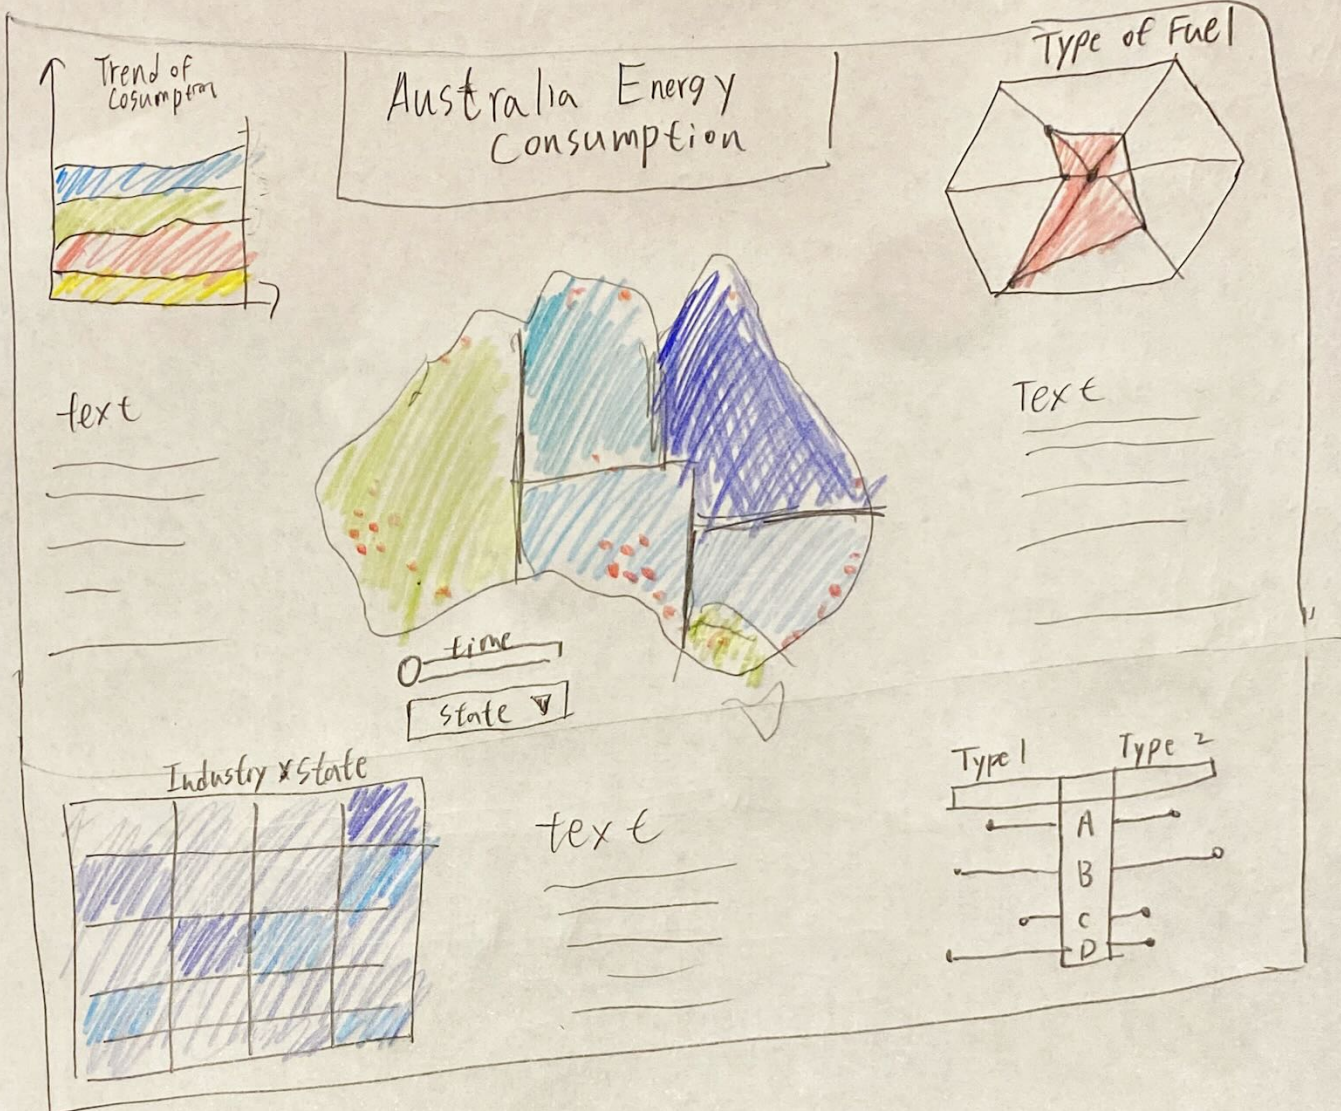 Trend of
Cosumption
Australia Energy
Consumption
Type of Fuel
text
Text
time
state
Industry x state
text
Type 1
Type 2
A
B
C
D